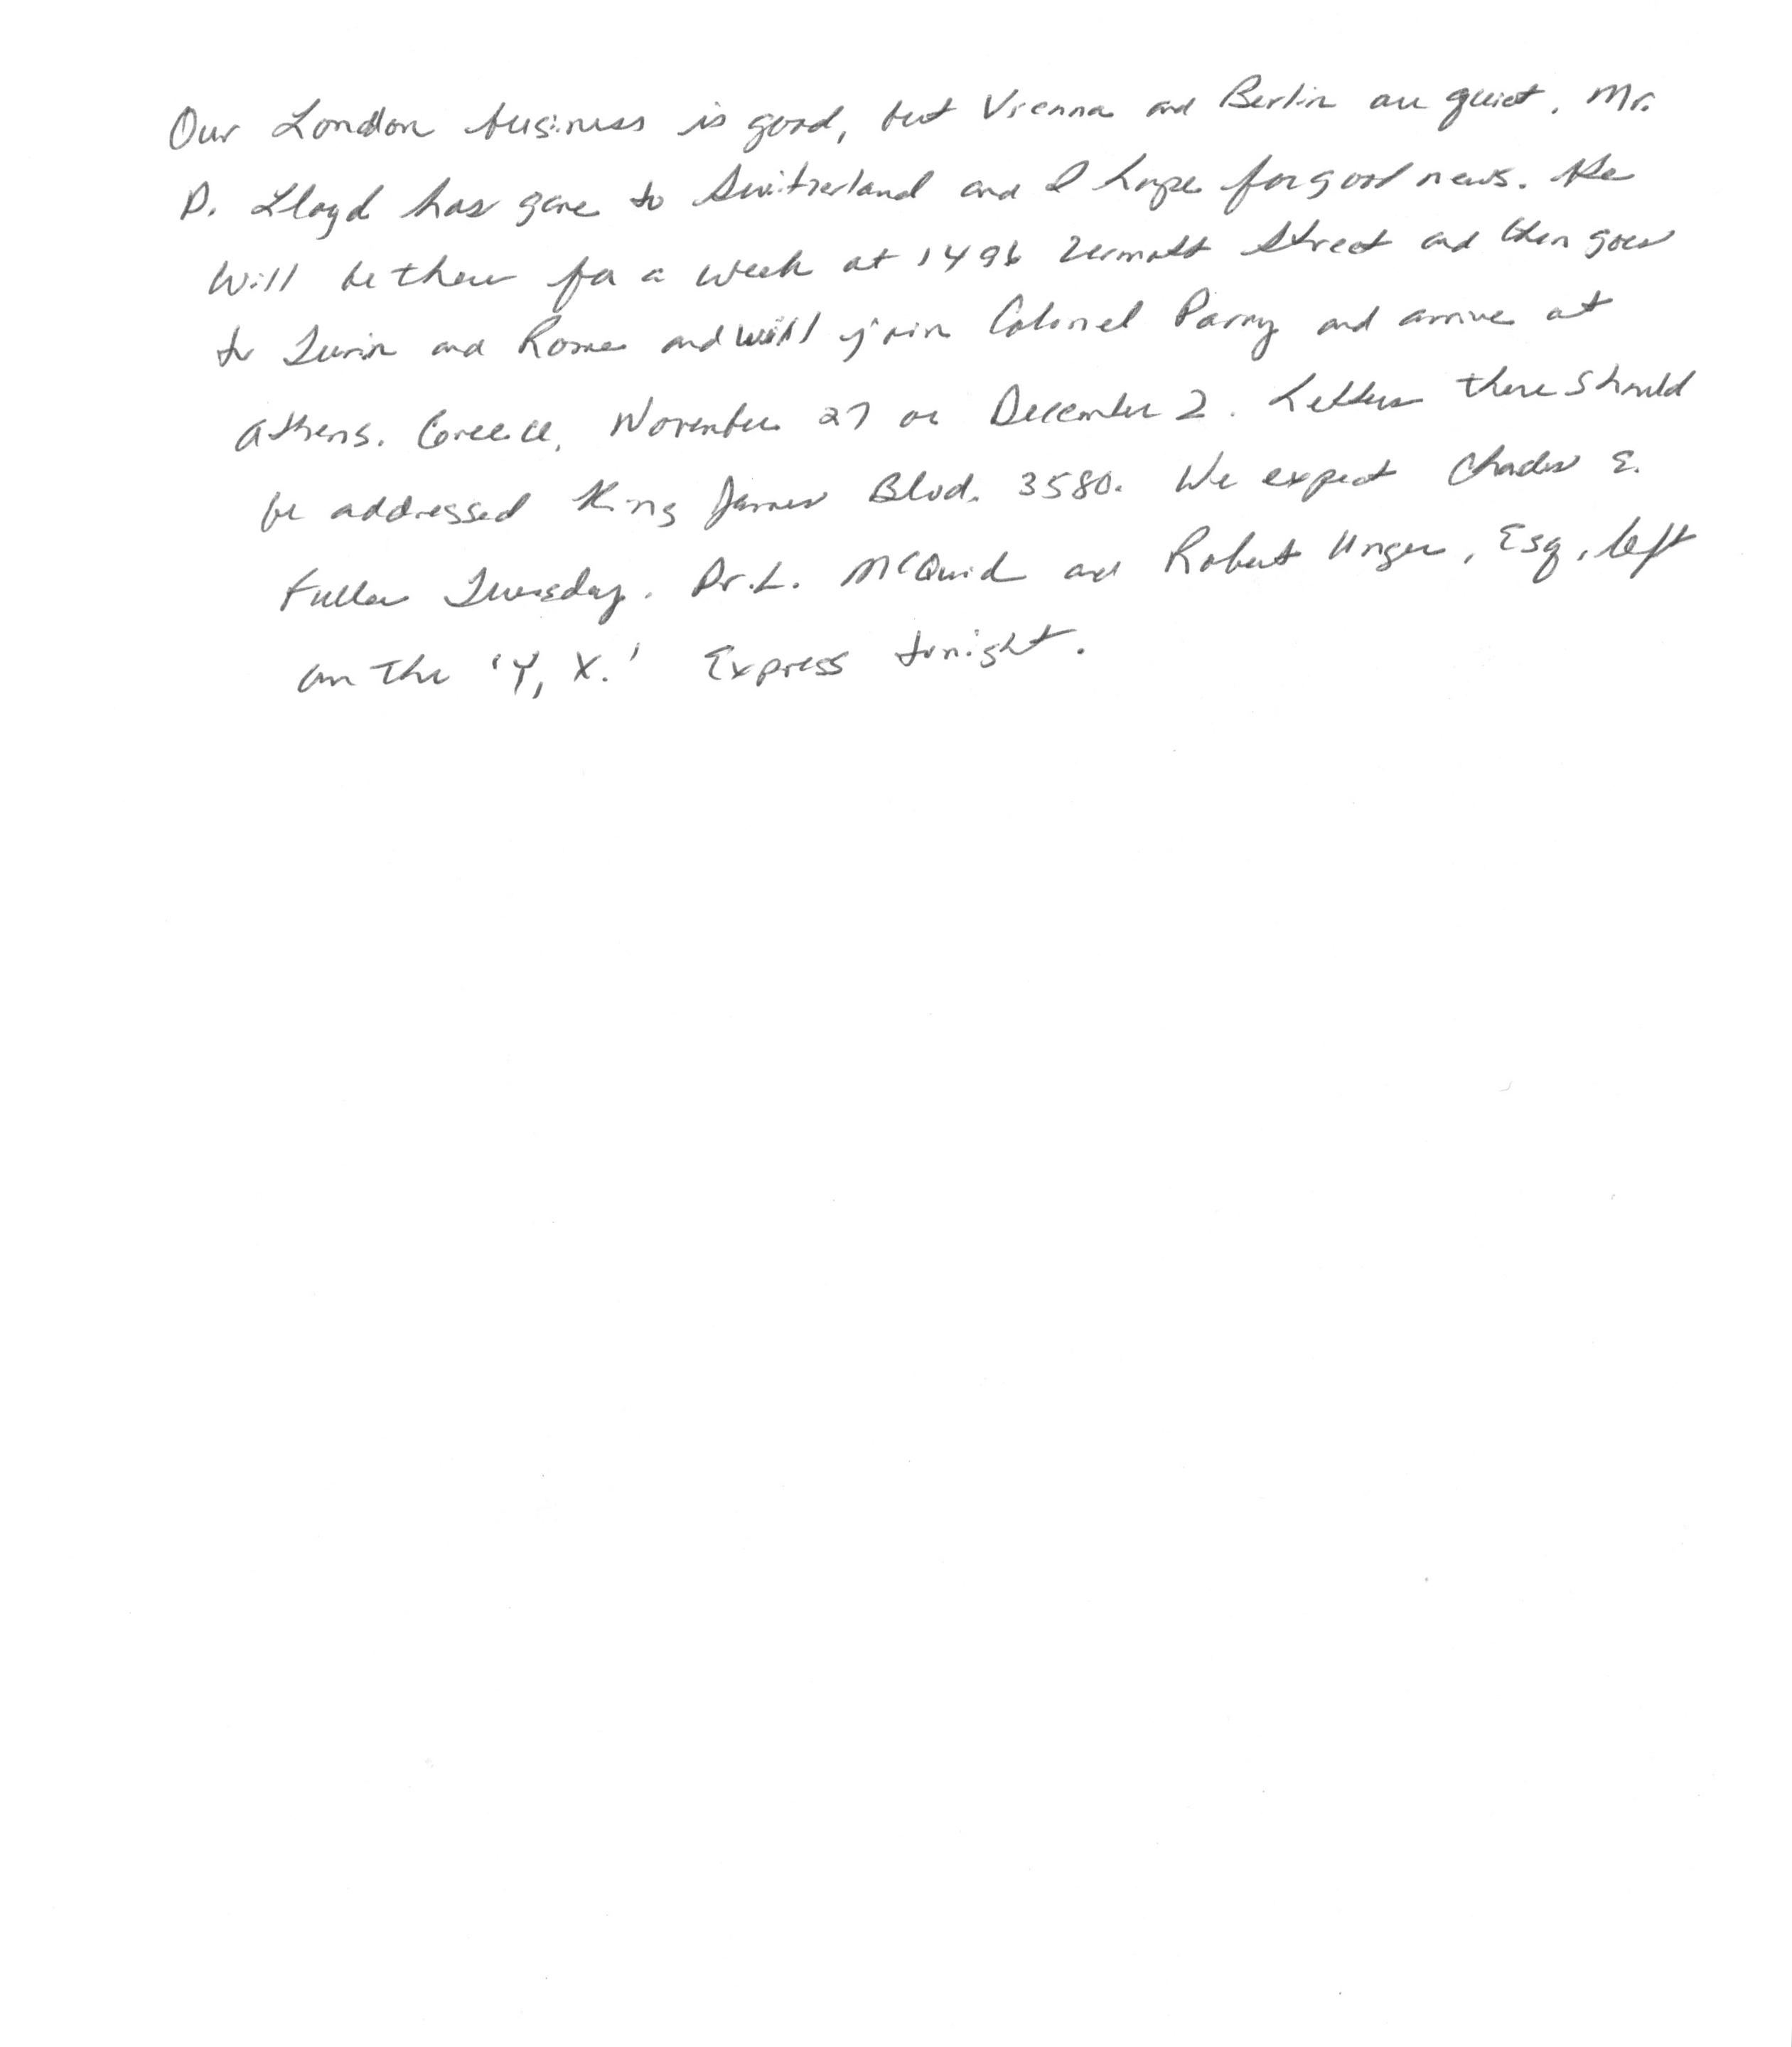 Our London business is good, but Vienna and Berlin are quiet. Mr.
D. Lloyd has gone to Switzerland and I hope for good news. He
will be there for a week at 1496 Zermatt Street and then goes
to Turin and Rome and will join Colonel Parry and arrive at
Athens. Greece, November 27 or December 2. Letters there should
be addressed King James Blvd. 3580. We expect Charles E.
Fuller Tuesday. Dr. L. McQuid and Robert Unger, Esq, left
on the 'Y, X.' Express tonight.